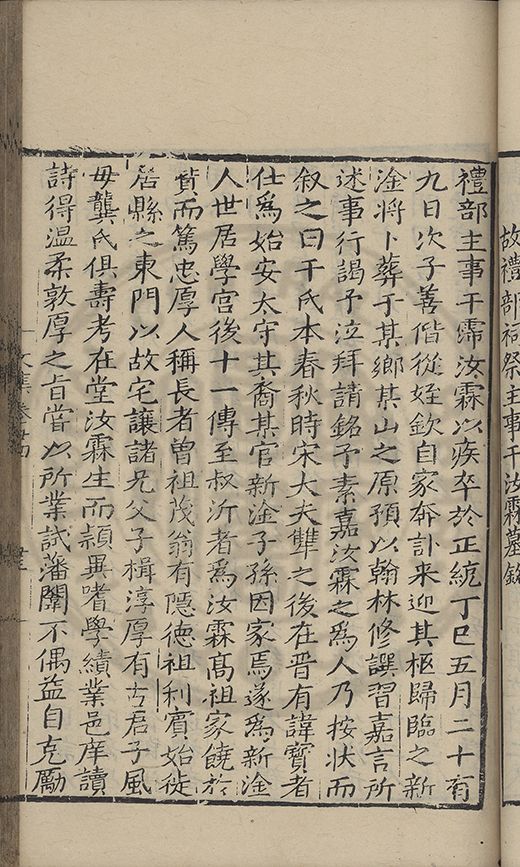 故禮部祠祭主事干汝霖墓銘
禮部主事干霈汝霖以疾卒於正統丁巳五月二十有
九日次子善偕從姪欽自家奔訃来迎其柩歸臨之新
淦将卜葬于其鄉某山之原預以翰林修譔習嘉言所
述事行謁予泣拜請銘予素嘉汝霖之爲人乃按状而
叙之曰干氏本春秋時宋大夫犨之後在晋有諱寳者
仕爲始安太守其裔某官新淦子孫因家焉遂爲新淦
人世居學宫後十一傳至叔沂者爲汝霖髙祖家饒於
貲而篤忠厚人稱長者曾祖茂翁有隱德祖利賓始徙
居縣之東門以故宅讓諸兄父子楫淳厚有古君子風
母龔氏俱壽考在堂汝霖生而穎異嗜學績業邑庠讀
詩得温柔敦厚之旨嘗以所業試藩闈不偶益自克勵